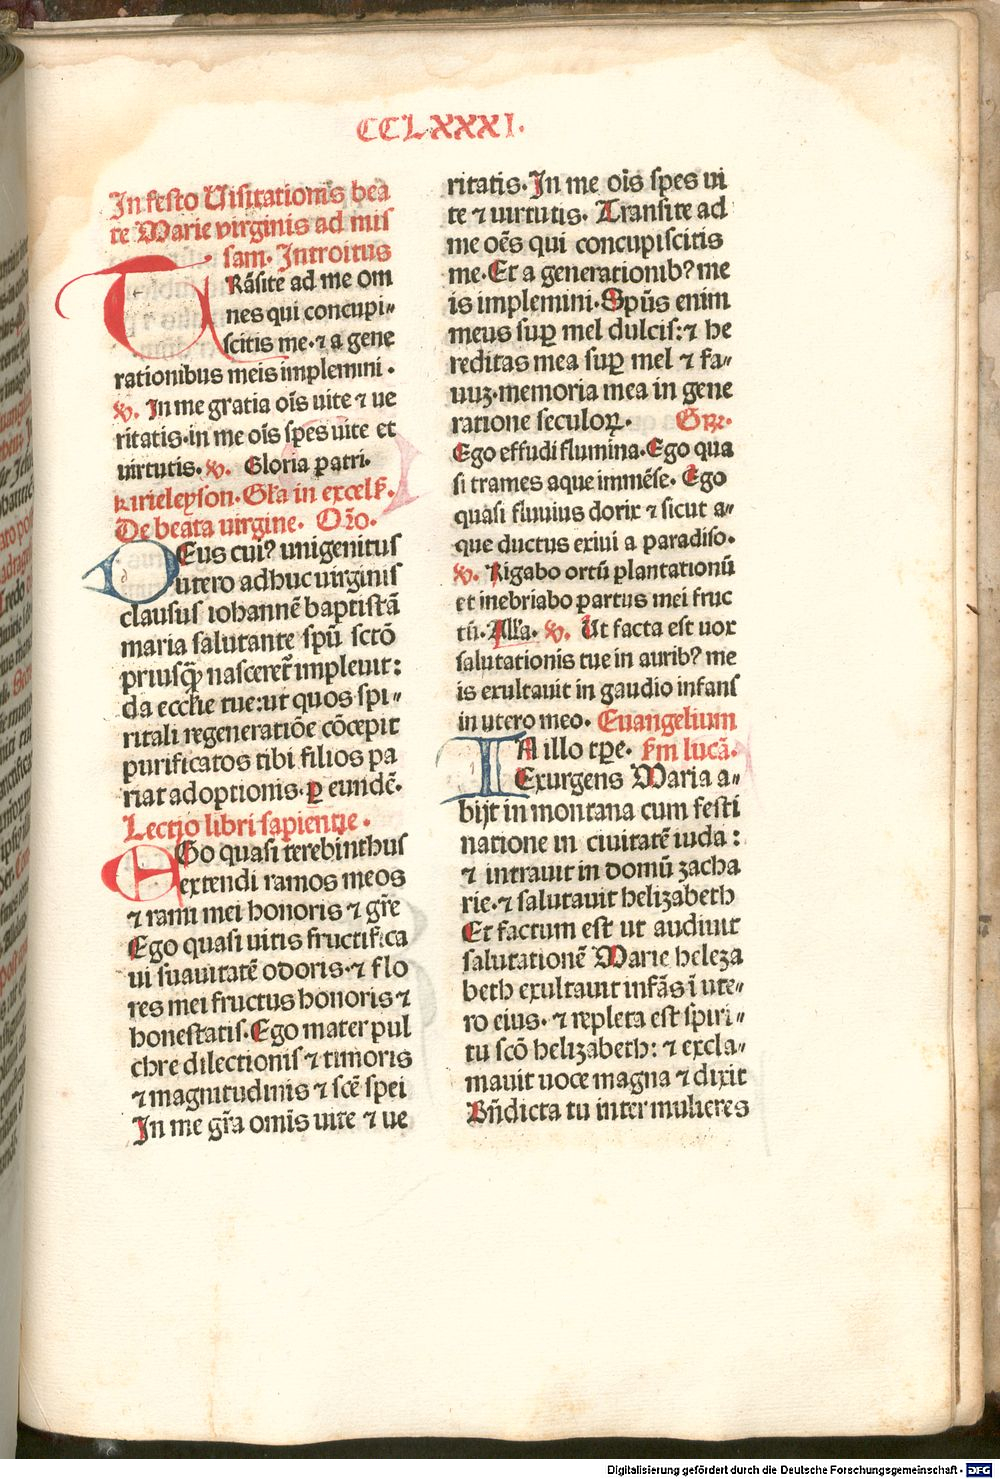 CCLXXXI.
In festo Visitationis bea
te Marie virginis ad mis
sam. Introitus
TRãsite ad me om
nes qui concupi-
scitis me. ⁊ a gene
rationibus meis implemini.
℣. In me gratia oīs uite ⁊ ue
ritatis. in me oīs spes uite et
uirtutis. ℣. Gloria patri.
kirieleyson. Gła in excelẜ.
De beata uirgine. Oro.
DEus cui? unigenitus
utero adhuc uirginis
clausus iohannē baptistã
maria salutante spũ sctõ
priusꝙ nascerer̃ impleuit:
da eccłie tue: ut quos spi-
ritali regeneratiõe cõcepit
purificatos tibi filios pa
riat adoptionis. ꝑ eundē.
Lectio libri sapientie.
EGo quasi terebinthus
extendi ramos meos
⁊ rami mei honoris ⁊ gře
Ego quasi uitis fructifica
ui suauitatē odoris. ⁊ flo
res mei fructus honoris ⁊
honestatis. Ego mater pul
chre dilectionis ⁊ timoris
⁊ magnitudinis ⁊ scē spei
In me gřa omīs uite ⁊ ue
ritatis. In me oīs spes ui
te ⁊ uirtutis. Transite ad
me oēs qui concupiscitis
me. Et a generationib? me
is implemini. Spũs enim
meus suꝑ mel dulcis: ⁊ he
reditas mea suꝑ mel ⁊ fa-
uuz. memoria mea in gene
ratione seculoꝝ. Gře.
Ego effudi flumina. Ego qua
si trames aque immēse. Ego
quasi fluuius dorix ⁊ sicut a-
que ductus exiui a paradiso.
℣. Rigabo ortũ plantationũ
et inebriabo partus mei fruc
tũ. Ałła. ℣. Ut facta est uox
salutationis tue in aurib? me
is exultauit in gaudio infans
in utero meo. Euangelium
IN illo tꝑe. ẜm lucã.
Exurgens Maria a-
bijt in montana cum festi
natione in ciuitatē iuda:
⁊ intrauit in domũ zacha
rie. ⁊ salutauit helizabeth
Et factum est ut audiuit
salutationē Marie heleza
beth exultauit infãs ī ute-
ro eius. ⁊ repleta est spiri-
tu scõ helizabeth: ⁊ excla-
mauit uoce magna ⁊ dixit
Bñdicta tu inter mulieres
Digitalisierung gefördert durch die Deutsche Forschungsgemeinschaft - DFG